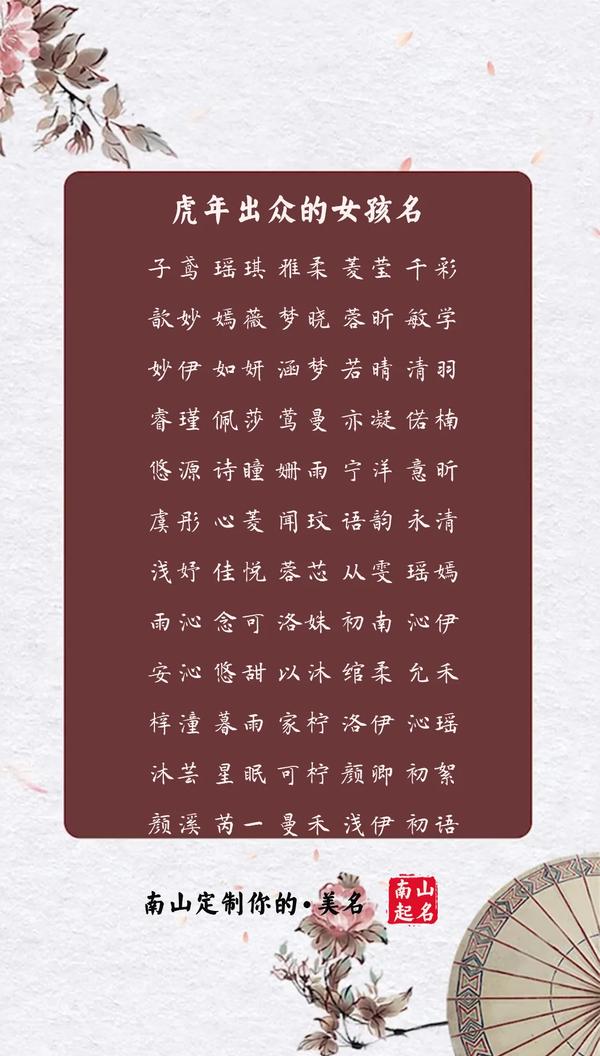 虎年出众的女孩名
子鸢 瑶琪 雅柔 菱莹 千彩
歆妙 嫣薇 梦晓 蓉昕 敏学
妙伊 如妍 涵梦 若晴 清羽
睿瑾 佩莎 莺曼 亦凝 偌楠
悠源 诗瞳 姗雨 宁洋 意昕
虞彤 心菱 闻玟 语韵 永清
浅妤 佳悦 蓉芯 从雯 瑶嫣
雨沁 念可 洛姝 初南 沁伊
安沁 悠甜 以沐 绾柔 允禾
梓潼 暮雨 家柠 洛伊 沁瑶
沐芸 星眠 可柠 颜卿 初絮
颜溪 芮一 曼禾 浅伊 初语
南山定制你的·美名
南山
起名